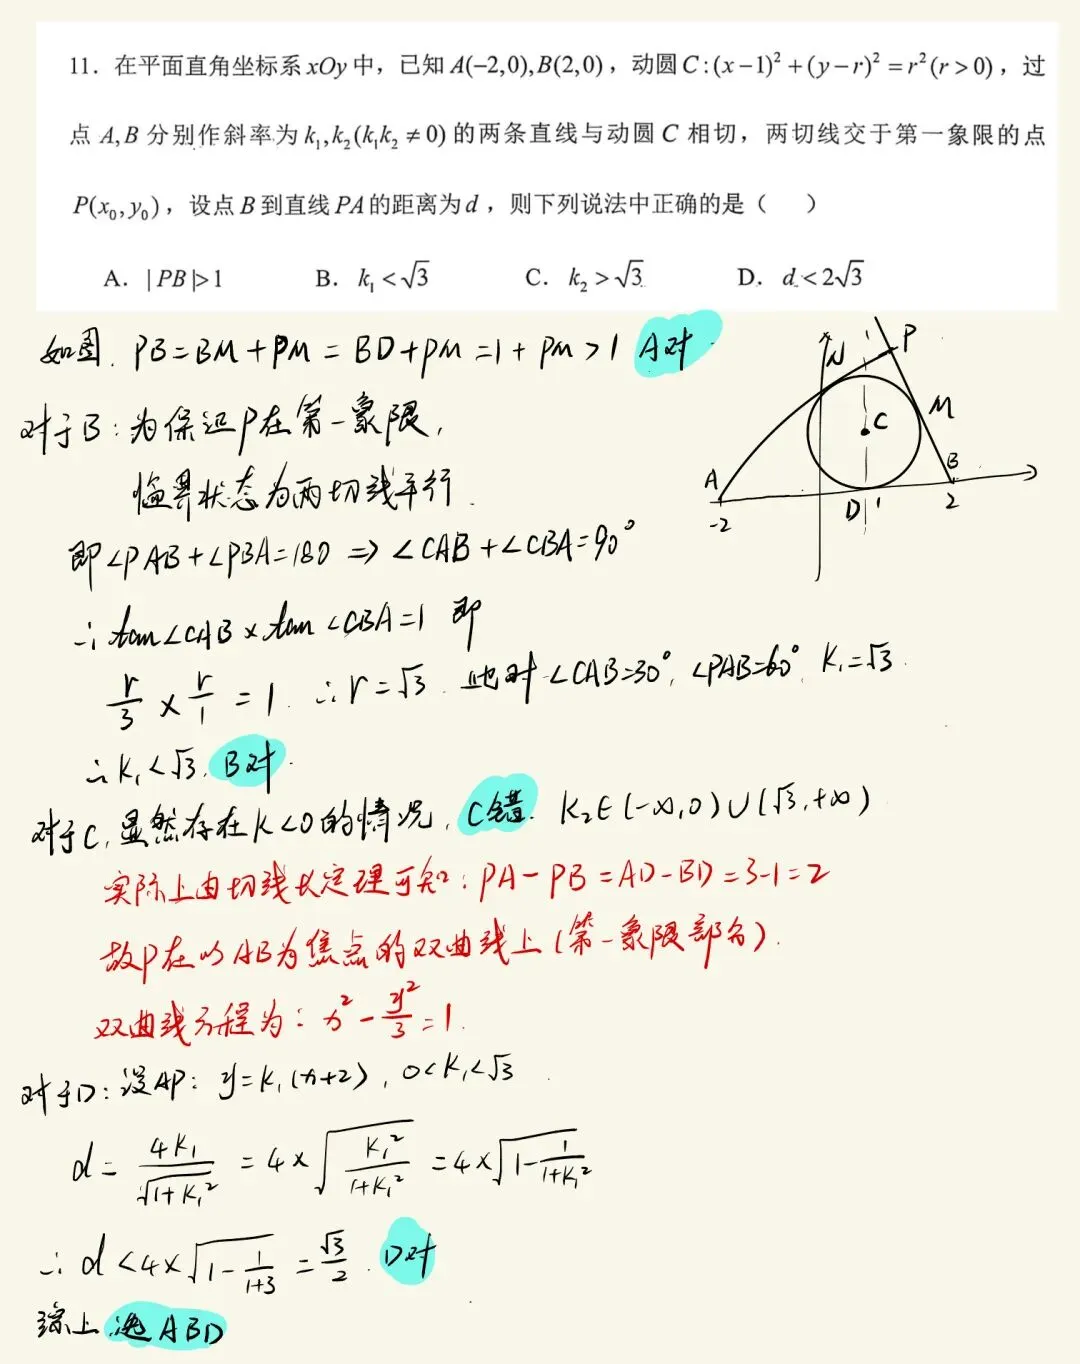 11. 在平面直角坐标系 xOy 中，已知 A(−2,0), B(2,0)，动圆 C:(x−1)²+(y−r)²=r²(r>0)，过
点 A,B 分别作斜率为 k₁,k₂(k₁k₂≠0) 的两条直线与动圆 C 相切，两切线交于第一象限的点
P(x₀,y₀)，设点 B 到直线 PA 的距离为 d，则下列说法中正确的是（ ）
A. |PB|>1 B. k₁<√3 C. k₂>√3 D. d<2√3
如图. PB=BM+PM=BD+PM=1+PM>1 A对.
对于B: 为保证P在第一象限,
临界状态为两切线平行.
即∠PAB+∠PBA=180 ⇒ ∠CAB+∠CBA=90°
∴ tan∠CAB × tan∠CBA=1 即
r/3 × r/1 = 1. ∴ r=√3. 此时∠CAB=30°, ∠PAB=60°, K₁=√3.
∴ K₁<√3. B对.
对于C, 显然存在K<0的情况, C错. K₂∈(-∞,0)∪(√3,+∞)
实际上由切线长定理可知: PA-PB=AD-BD=3-1=2
故P在以AB为焦点的双曲线上(第一象限部分).
双曲线方程为: x²-y²/3=1.
对于D: 设AP: y=K₁(x+2), 0<K₁<√3
d=4K₁/√(1+K₁²) =4×√(K₁²/(1+K₁²)) =4×√(1-1/(1+K₁²))
∴ d<4×√(1-1/(1+3)) =√3/2. D对
综上 选ABD
N
P
C
M
A
B
-2
D
1
2